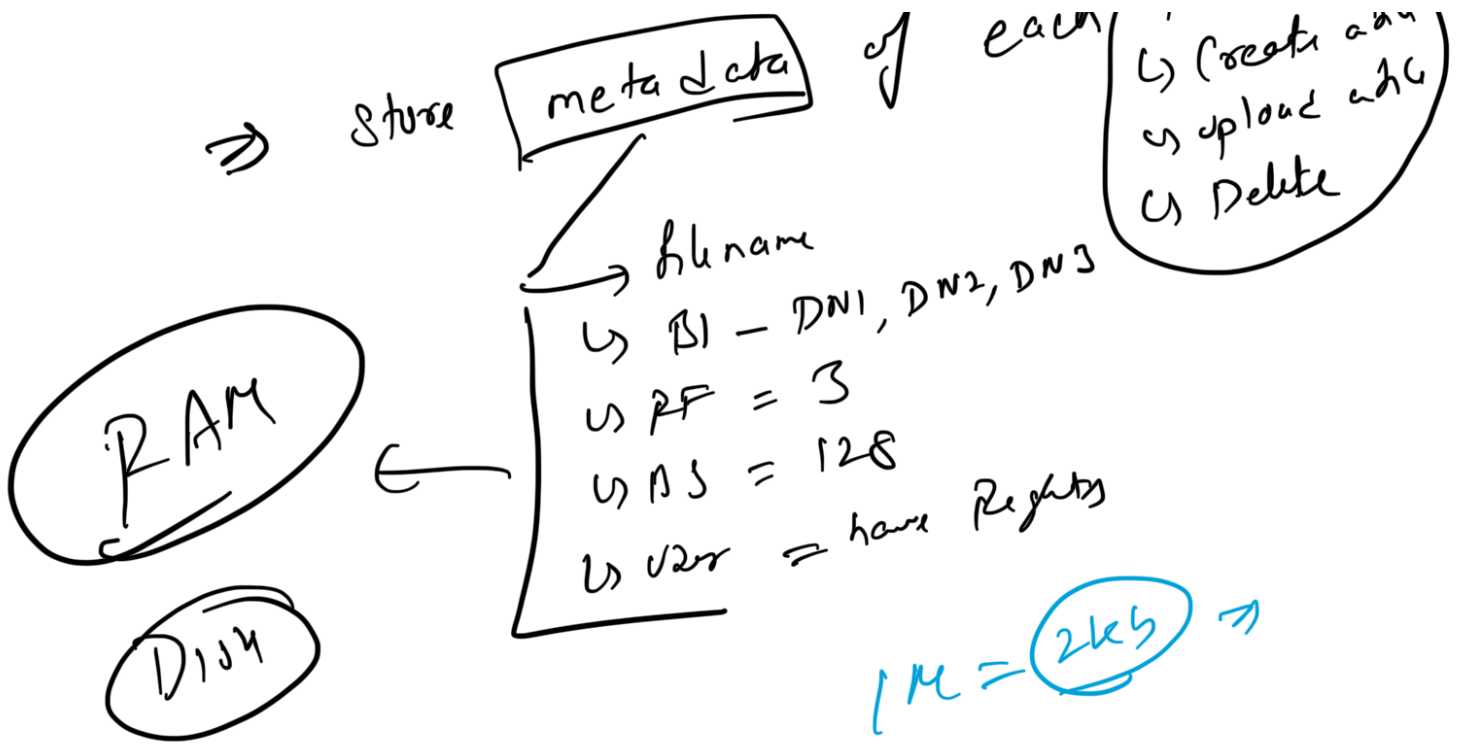 ⇒ store metadata of each
↳ Create a
↳ upload a
↳ Delete
→ filename
↳ B1 - DN1, DN2, DN3
↳ RF = 3
↳ BS = 128
↳ User = have Rights
RAM
Disk
1M = 2kb ⇒